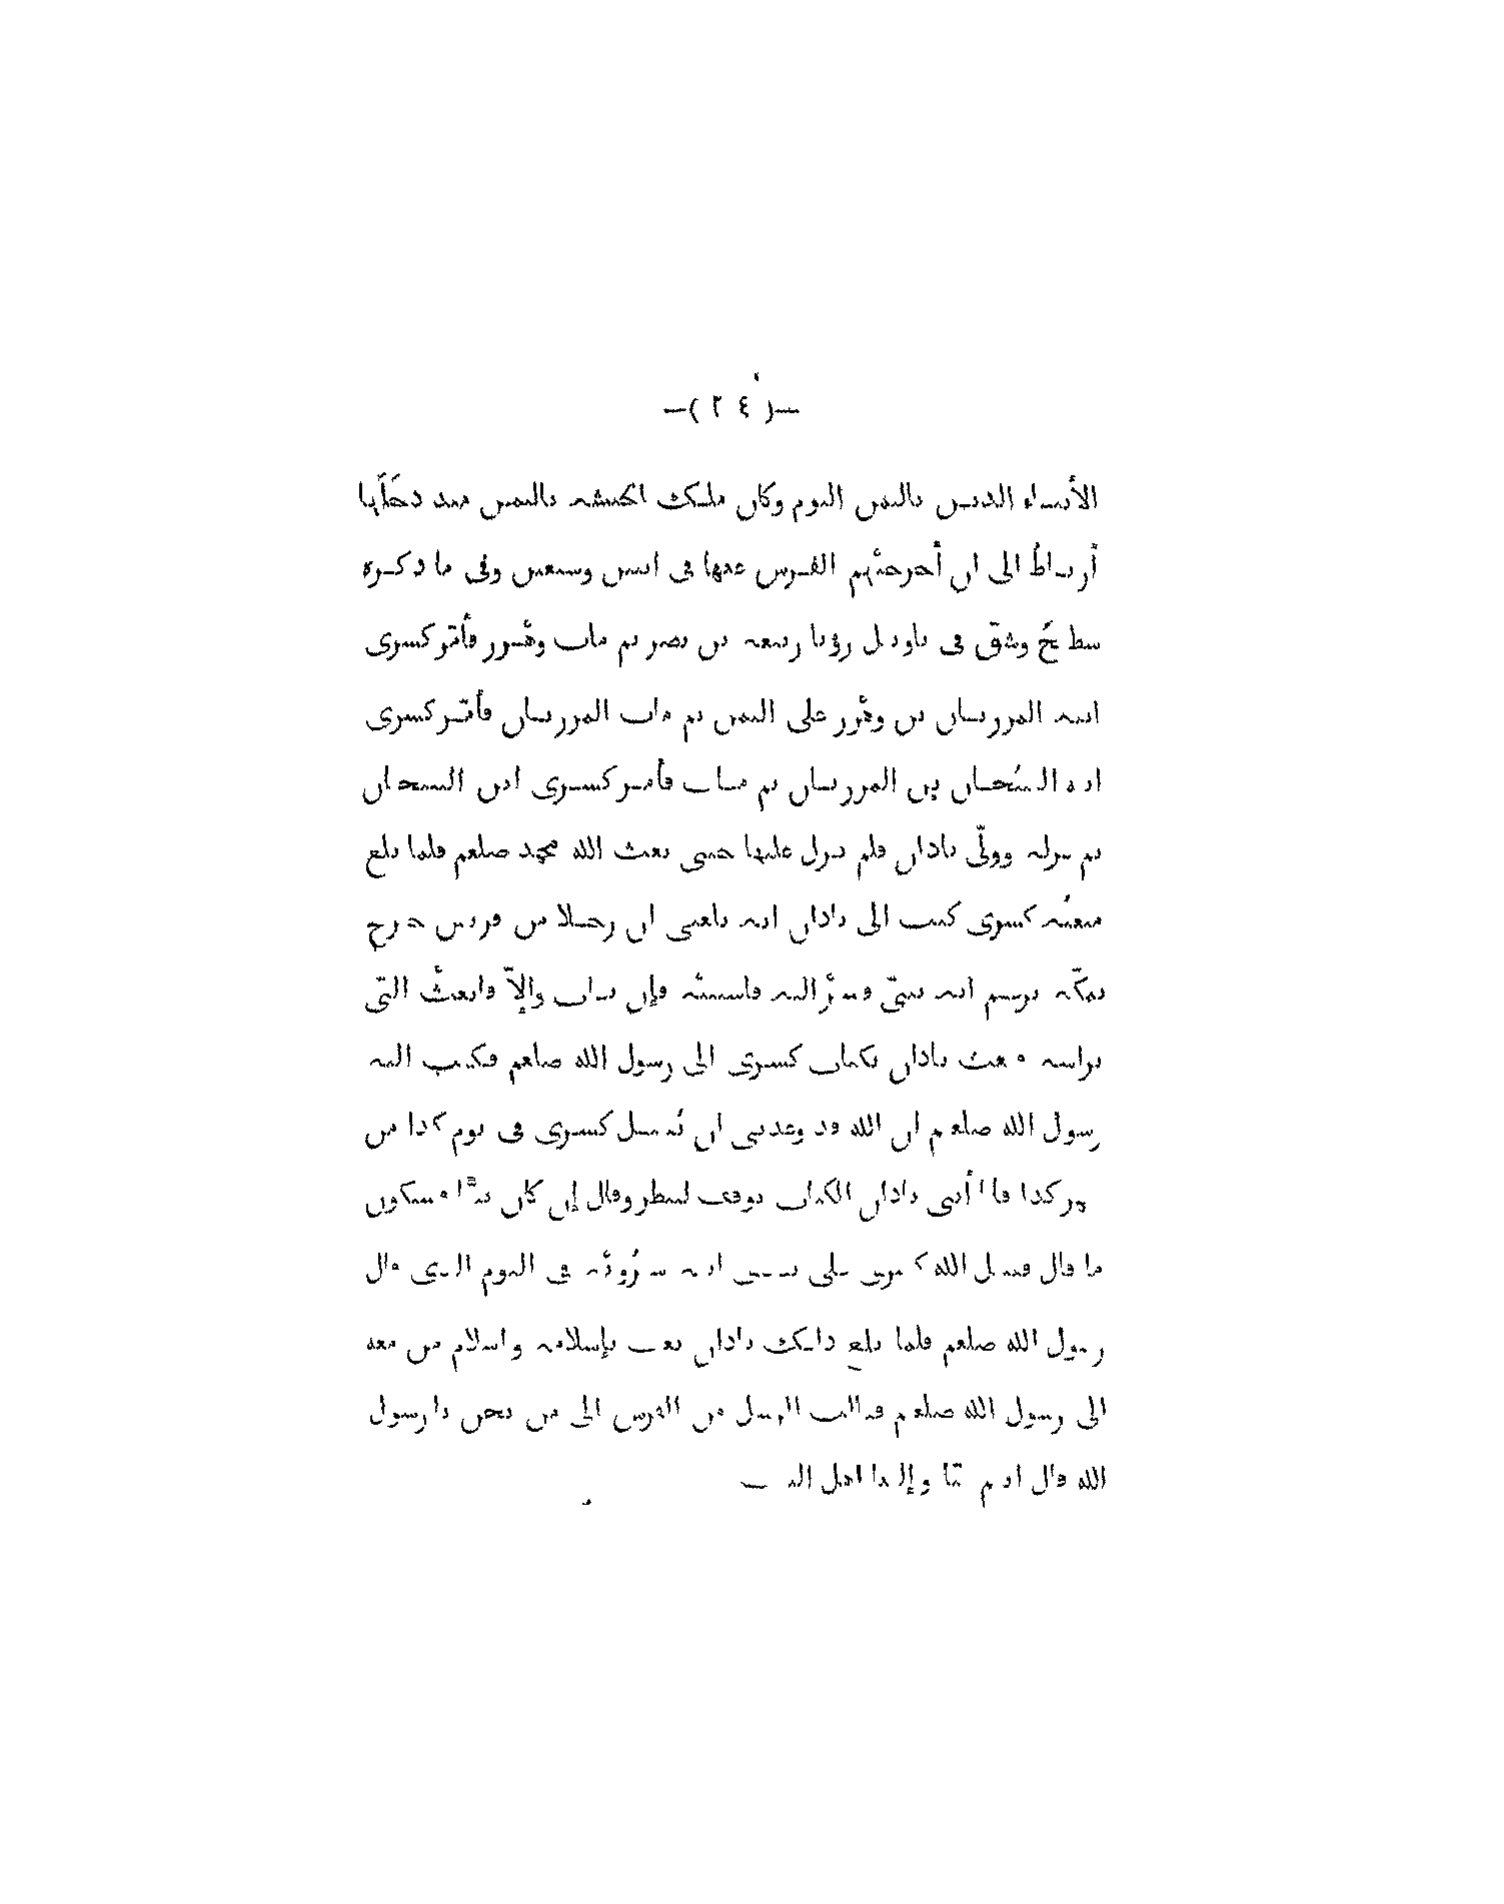 —( ٢٤ )—
الأبناء الذين باليمن اليوم وكان ملك الحبشة باليمن منذ دخَلَها
أرياطُ الى ان أخرجتْهم الفرس عنها في اثنين وسبعين وفي ما ذكره
سطيحُ وشقّ في تاويل رؤيا ربيعة بن نصر ثم مات وهْرِز فأمّر كسرى
ابنه المرزبان بن وهْرز على اليمن ثم مات المرزبان فأمّر كسرى
ابنه السُنحان بن المرزبان ثم مات فأمر كسرى ابن السنحان
ثم عزله وولّى باذان فلم يزل عليها حتى بعث الله محمد صلعم فلما بلغ
مبعثُه كسرى كتب الى باذان انه بلغني ان رجلا من قريش خرج
بمكّة يزعم انه نبيّ فسرْ اليه فاستتبْه فإن تاب وإلاّ فابعثْ التي
براسه فبعث باذان بكتاب كسرى الى رسول الله صلعم فكتب اليه
رسول الله صلعم ان الله قد وعدني ان يُقتل كسرى في يوم كذا من
شهر كذا فلما أتى باذان الكتاب توقف لينظر وقال إن كان نبيًّا فسيكون
ما قال فقتل الله كسرى على يدي ابنه شيرُويْه في اليوم الذي قال
رسول الله صلعم فلما بلغ ذلك باذان بعث بإسلامه واسلام من معه
الى رسول الله صلعم فقالت الرسل من الفرس الى من نحن يا رسول
الله قال انتم منّا وإلينا اهل البيت